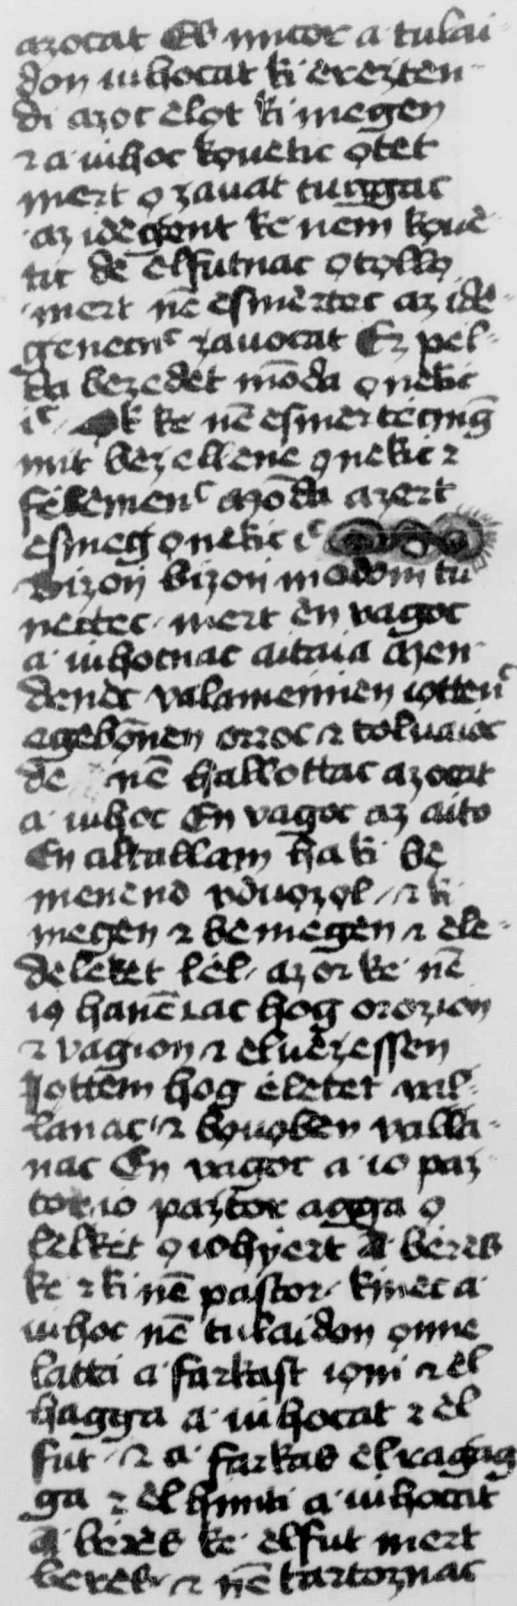 azocat Es mikor a tulai
don iuhocat ki èrezten
di azoc èlọt ki megèn
⁊ a iuhoc kọuetic ọtèt
mert ọ zauat tuggac
az idègent kè nem kọuè
tic dè èlfutnac ọtọllọ
mert nē esmèrtec az idè
genecnc zauocat Ez pel
da bezedèt mōda ọnekic
ic Ok kè nē esmertec mg
mit bezellene ọnekic ⁊
esmeg ọnekic ic
Bizoń bizoń mōdom tu
nectec mert èn vagoc
a iuhocnac aitaia Men
denèc valamennien iọttenc
orroc ⁊ toluaioc
dè nē hallottac azocat
a iuhoc En vagoc az aito
En altallam ha ki bè
menènd vduọzọl ⁊ ki
megèn ⁊ bèmegèn ⁊ èle
dèlekèt lèl az or kè nē
iọ hanē čac hog orozion
⁊ vagion ⁊ èluèzessen
Iọttem hog èlètèt val
lanac ⁊ bọuọben valla
nac En vagoc a io paz
tor io paztor agga ọ
lèlkèt ọ iohyert A bèrès
kè ⁊ ki nē pastor kinèc a
iuhoc nē tulaidon ọnnè
lattia a farkast iọni ⁊ èl
hagga a iuhocat ⁊ èl
fut ⁊ a farkas èlragag
ga ⁊ èlhinti a iuhocat
A bèrès kè èlfut mert
bèrès ⁊ nē tartoznac